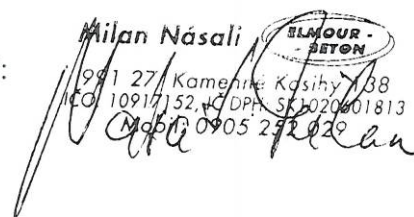 Milan Násali
ELMOUR -
- BETON
:
991 27 Kamenné Kosihy 138
IČO: 10917152, IČ DPH: SK1020601813
Mobil: 0905 252 029
Milan